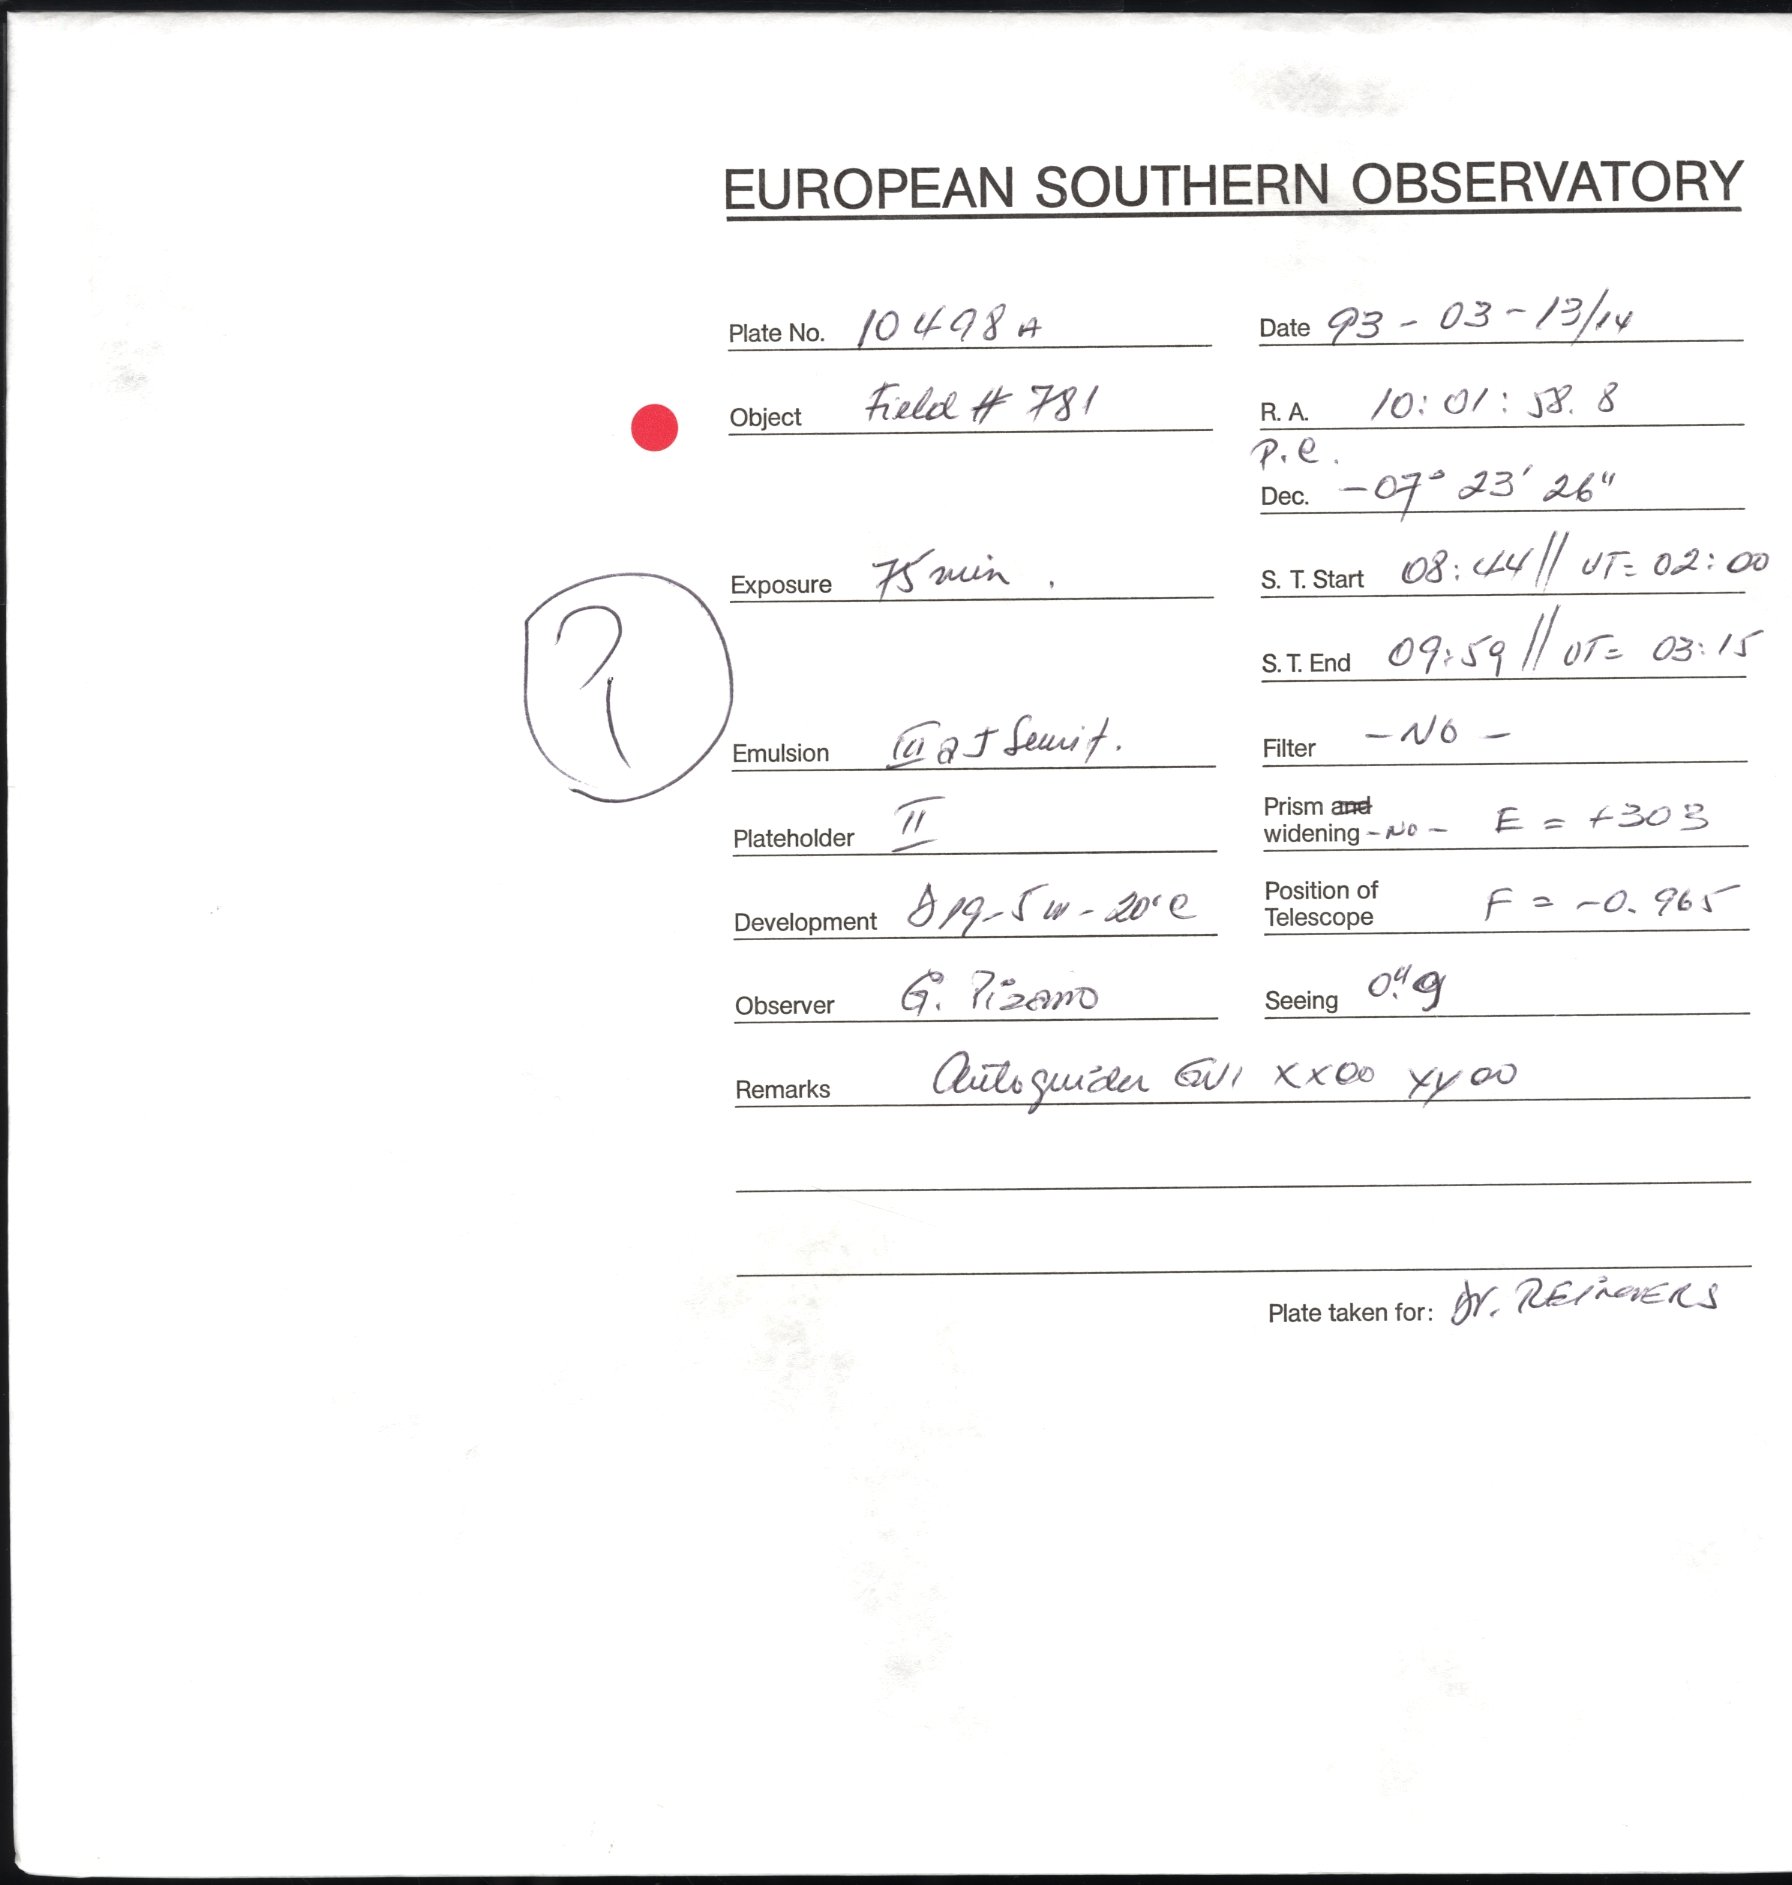 EUROPEAN SOUTHERN OBSERVATORY
Plate No. 10498A
Date 93-03-13/14
Object Field # 781
R. A. 10:01:58.8
P.C.
Dec. -07° 23' 26"
Exposure 75 min.
S. T. Start 08:44 // UT= 02:00
S. T. End 09:59 // UT= 03:15
?
Emulsion IIIaJ Sensit.
Filter -NO-
Plateholder II
Prism and
widening -NO- E = +303
Development D19-5m-20°C
Position of
Telescope F = -0.965
Observer G. Pizarro
Seeing 0."9
Remarks Autoguider XX00 YY00
Plate taken for: Dr. REIMERS